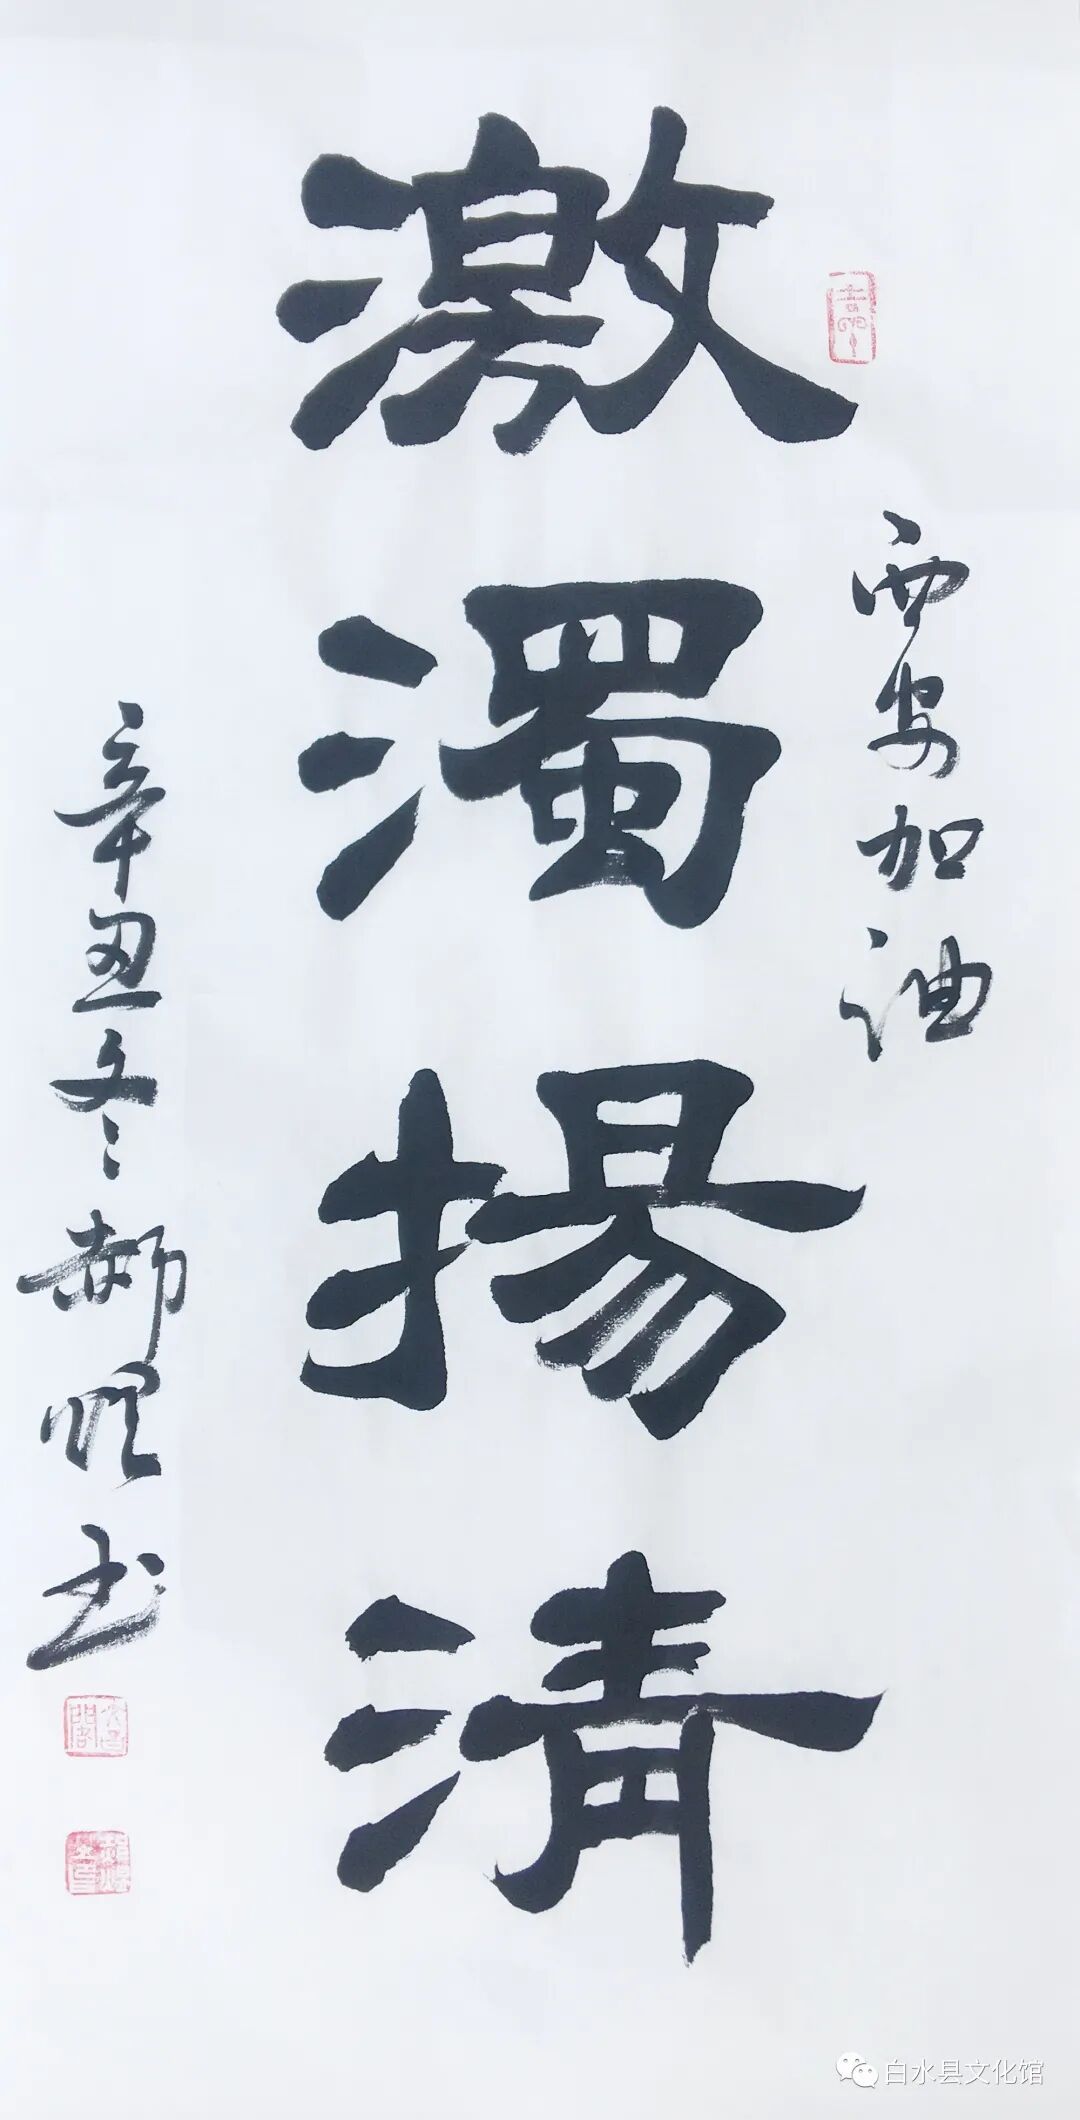 西安加油
激濁揚清
辛丑冬郝 书
白水县文化馆